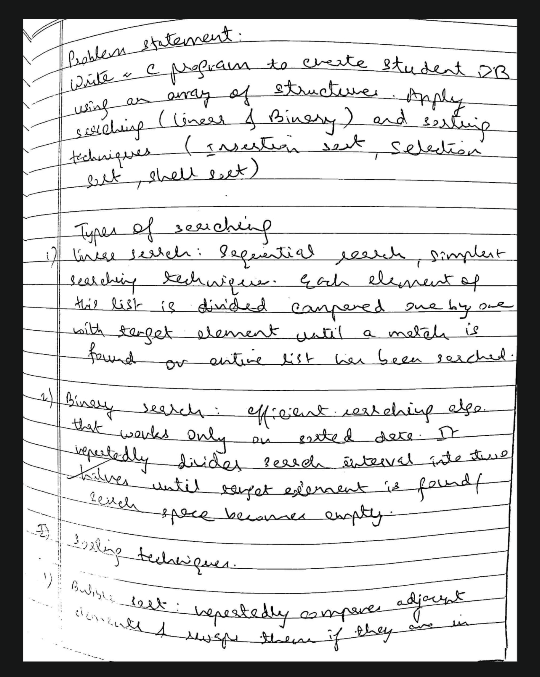 Problem statement:
Write a C program to create student DB
using an array of structures. Apply
searching (linear & Binary) and sorting
techniques (Insertion sort, Selection
sort, shell sort)
Types of searching
1) linear search: Sequential search, simplest
searching technique. Each element of
this list is divided compared one by one
with target element until a match is
found or entire list has been searched.
2) Binary search: efficient searching algo.
that works only on sorted data. It
repeatedly divides search interval into two
halves until target element is found/
search space becomes empty.
II) Sorting techniques.
1) Bubble sort: repeatedly compares adjacent
elements & swaps them if they are in